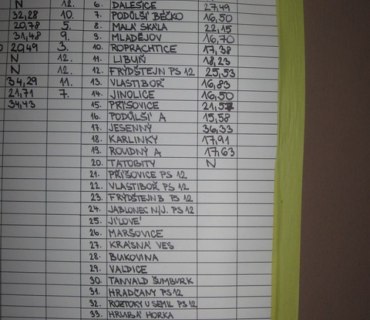 N 12. 6. DALEŠICE 27,49
32,28 10. 7. PODŮLŠÍ BĚČKO 16,50
20,78 5. 8. MALÁ SKÁLA 22,15
31,48 9. 9. MLADĚJOV 16,70
20,49 3. 10. ROPRACHTICE 17,38
N 12. 11. LIBUŇ 18,23
N 12. 12. FRÝDŠTEJN PS 12 25,53
34,29 11. 13. VLASTIBOŘ 16,83
21,71 7. 14. JINOLICE 16,50
34,43 15. PŘÍŠOVICE
16. PODŮLŠÍ A 15,58
17. JESENNÝ 36,33
18. KARLINKY 17,91
19. ROUDNÝ A 17,63
20. TATOBITY N
21. PŘÍŠOVICE PS 12
22. VLASTIBOŘ PS 12
23. FRÝDŠTEJN B PS 12
24. JABLONEC N/J. PS 12
25. JÍLOVÉ
26. MARŠOVICE
27. KRÁSNÁ VES
28. BUKOVINA
29. VALDICE
30. TANVALD ŠUMBURK
31. HRADČANY PS 12
32. ROZTOKY U SEMIL PS 12
33. HRUBÁ HORKA